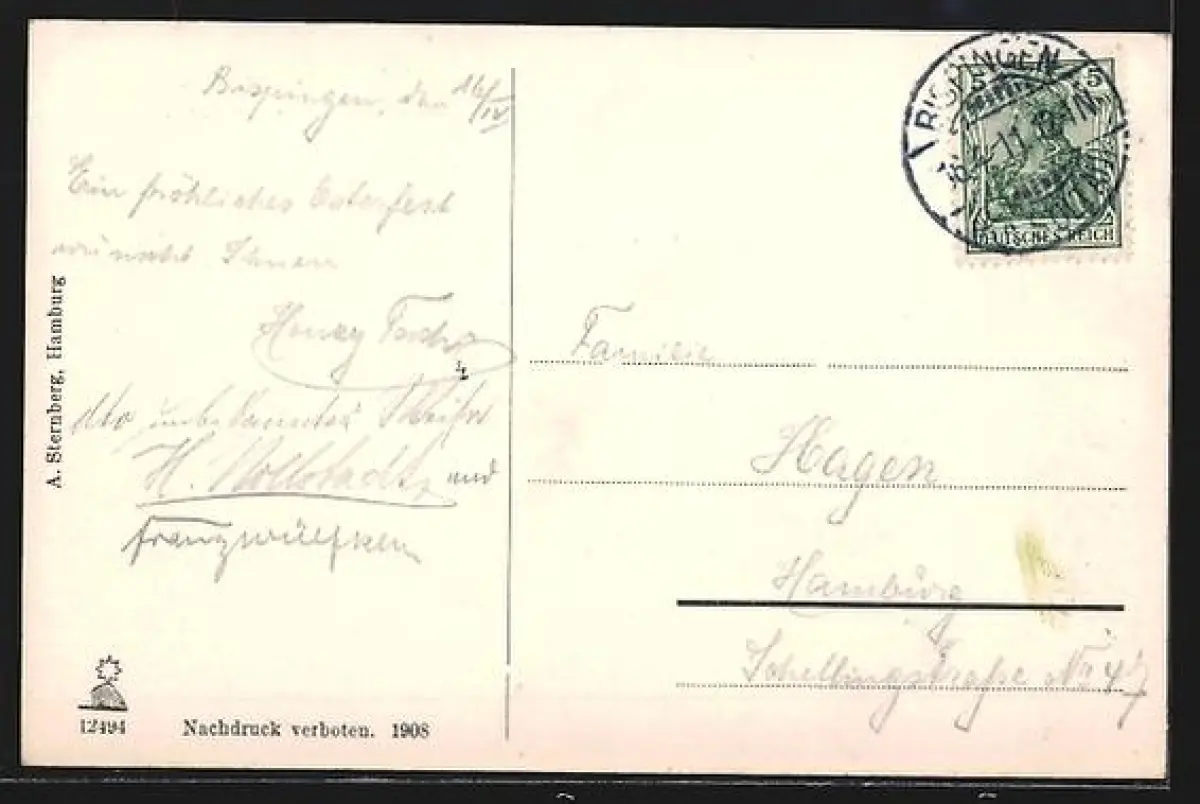 Bispingen, den 16/IV
Ein fröhliches Osterfest
wünscht Ihnen
Henry
dto unbekannter Weise
H. und
Franz Wülfken
A. Sternberg, Hamburg
12494
Nachdruck verboten. 1908
BISPINGEN
16.4.11
5 5
DEUTSCHES REICH
Familie
Hagen
Hamburg
Schellingstraße No 47